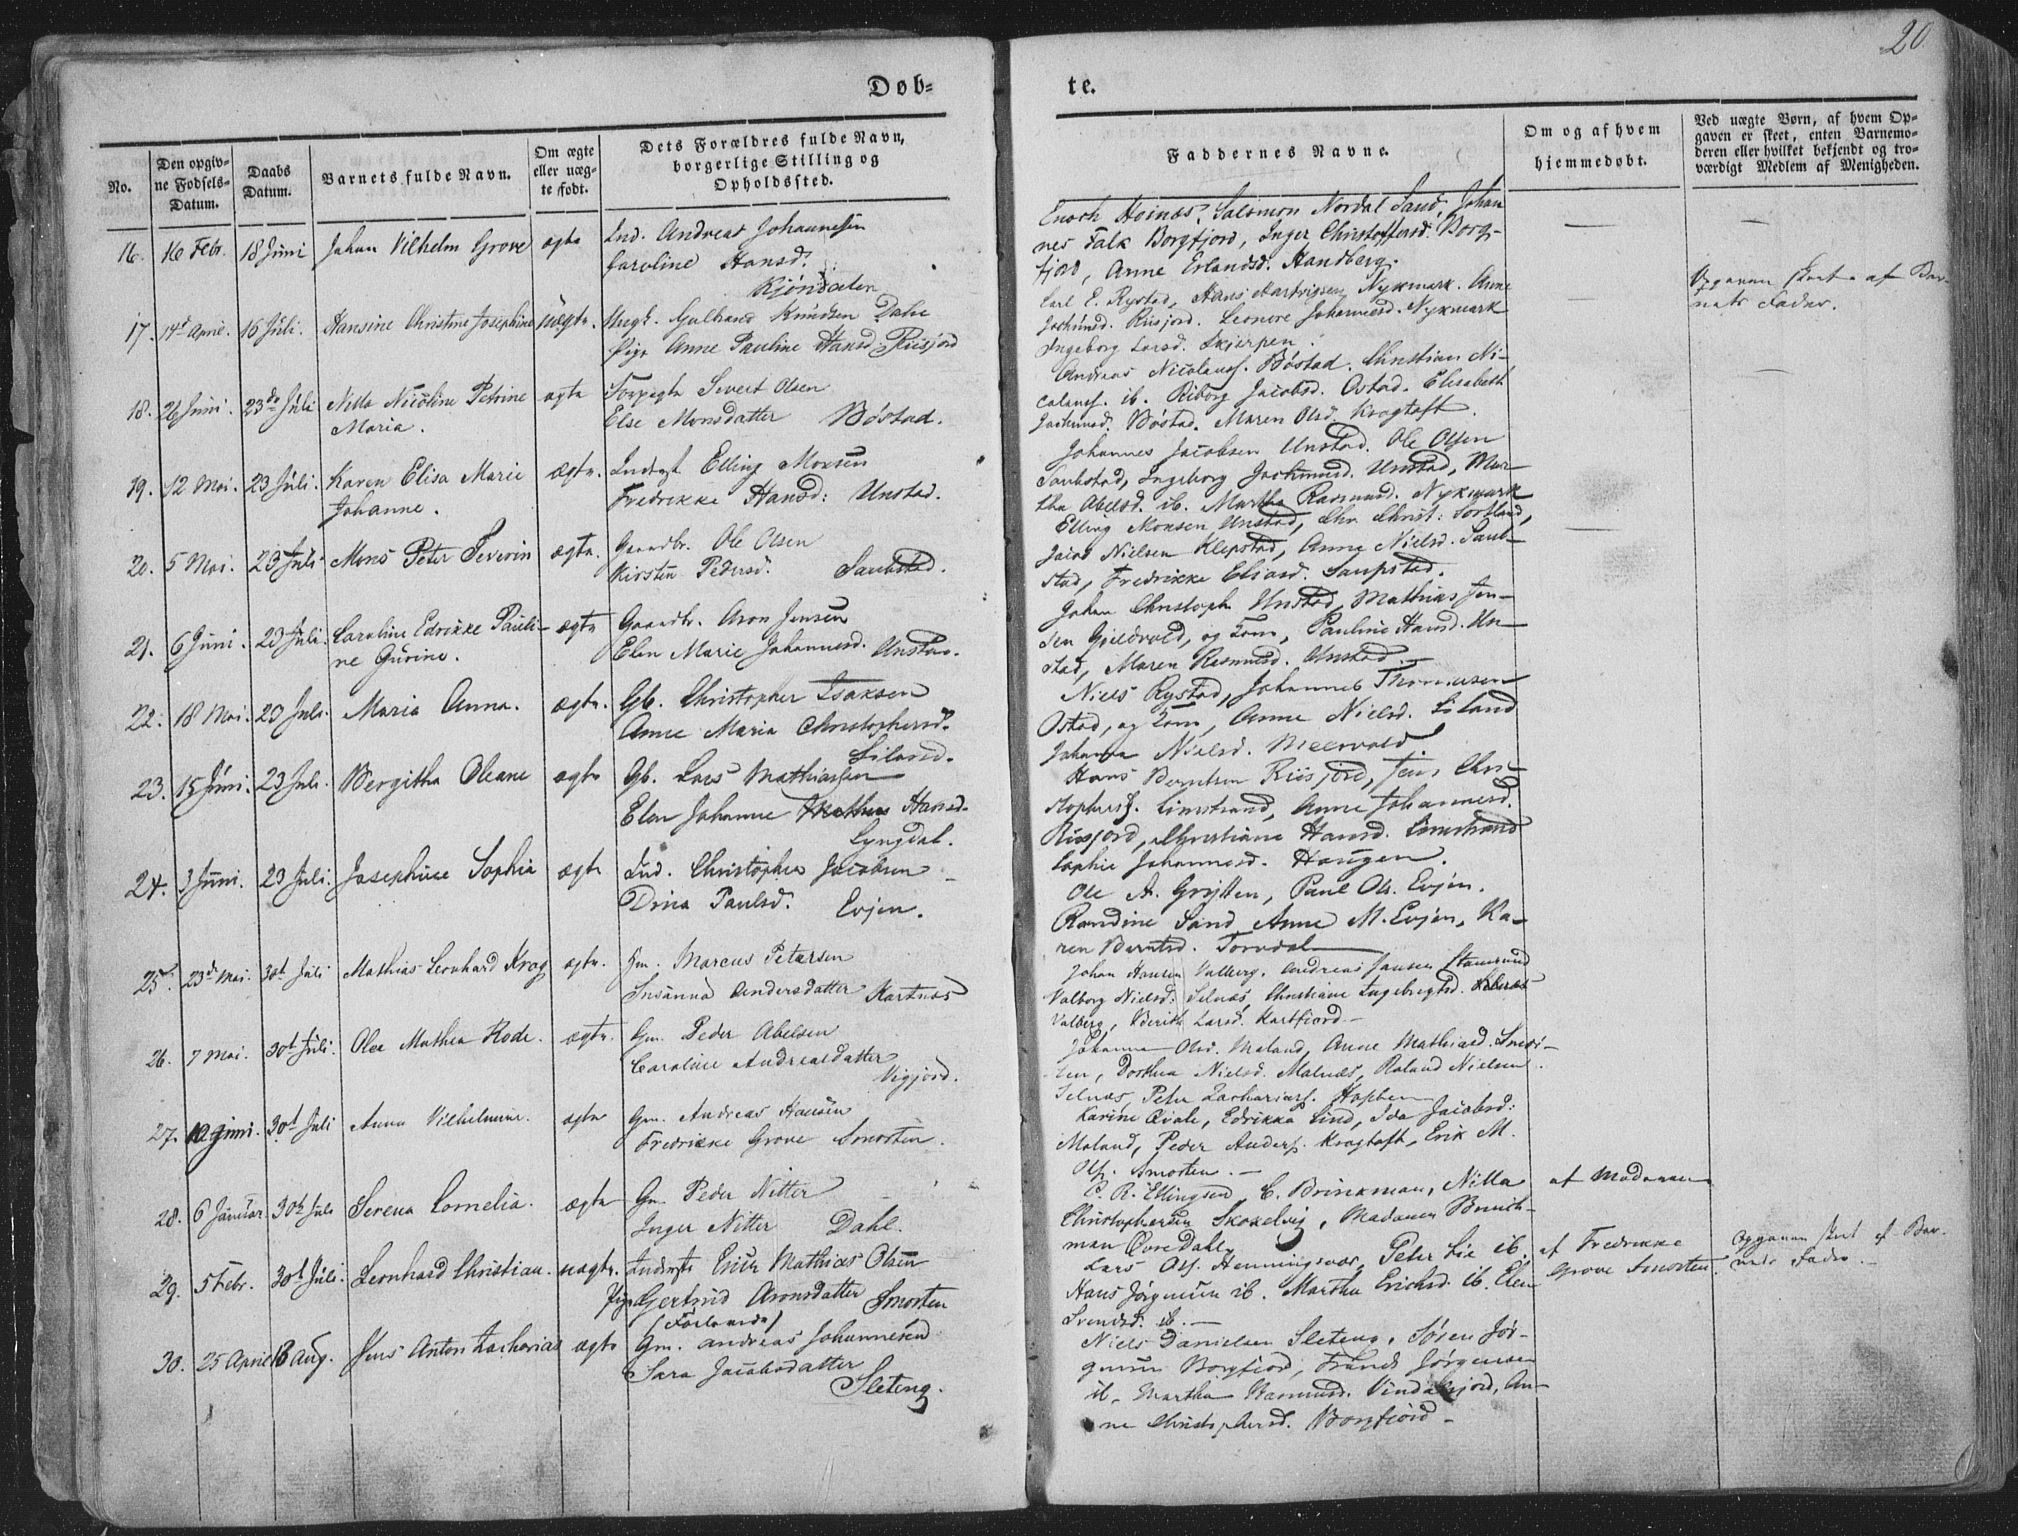 20
Døb-
te.
No.
Den opgiv-
ne Fødsels-
Datum.
Daabs
Datum.
Barnets fulde Navn.
Om ægte
eller uæg-
te født.
Dets Forældres fulde Navn,
borgerlige Stilling og
Opholdssted.
Faddernes Navne.
Om og af hvem
hjemmedøbt.
Ved uægte Børn, af hvem Op-
gaven er skeet, enten Barnemo-
deren eller hvilket bekjendt og tro-
værdigt Medlem af Menigheden.
16. 16 Febr. 18 Juni Johan Vilhelm Grove ægte Ind. Andreas Johannesen
Caroline Hansd.
Kjøndalen
Enoch Hoinæs, Salomon Nordal Sand, Johan
nes Falk Borgfjord, Inger Christoffersd. Borg-
fjord, Anne Erlandsd. Handberg.
17. 14de April. 16 Juli. Hansine Christine Josephine uægte. Ungk. Gulbrand Knudsen Dahl
Pige Anne Pauline Hansd. Riisjord
Carl E. Rystad, Hans Hartvigsen Nykmark. Anne
Jochumd. Riisjord. Leonore Johannesd. Nykmark
Ingeborg Larsd. Skjerpen.
Opgaven skeet af Bar-
nets Fader.
18. 26 Juni. 23de Juli Nilla Nicoline Petrine ægte Forpagter Sivert Olsen
Maria.
Else Monsdatter Bøstad.
Andreas Nicolaus. Bøstad. Christian Ni-
colaus. ib. Riborg Jacobsd. Ostad. Elisabeth
Jochumsd. Bøstad. Maren Olsd. Kragtoft.
19. 12 Mai. 23 Juli. Karen Elisa Marie ægte. Inderst Elling Monsen
Johanne.
Fredrikke Hansd: Unstad.
Johannes Jacobsen Unstad. Ole Olsen
Saubstad, Ingeborg Jochumsd. Unstad, Mar-
tha Abelsd. ib. Martha Rasmusd. Nykmark
20. 5 Mai. 23 Juli. Mons Peter Severin ægte. Gaardbr. Ole Olsen
Kirsten Pedersd. Saubstad.
Elling Monsen Unstad, Chr. Christ: Sortland,
Jacob Nielsen Klepstad, Anne Nielsd. Saub-
stad, Fredrikke Eliasd. Saupstad.
21. 6 Juni. 23 Juli. Caroline Edrikke Pauli- ægte Gaardbr. Aron Jensen
ne Gurine.
Elen Marie Johannesd. Unstad.
Johan Christoph Unstad, Mathias Jen-
sen Gjeldvold, og Kone, Pauline Hansd. Un-
stad, Maren Rasmusd. Unstad.
22. 18 Mai. 23 Juli. Maria Anna. ægte. Gb. Christopher Isaksen
Anne Maria Christophersd.
Liland.
Niels Rystad, Johannes Thomesen
Ostad, og Kone, Anne Nielsd. Liland
Johanna Nielsd. Meervold.
23. 15 Juni. 23 Juli. Bergitha Oleane ægte Gb. Lars Mathiassen
Elen Johanne Hansd.
Lyngdal.
Hans Berntsen Riisjord, Jens Chri-
stophers. Limstrand, Anne Johannesd.
Riisjord, Christiane Hansd. Limstrand
Sophie Johannesd. Haugen.
24. 3 Juni. 23 Juli. Josephine Sophia ægte Ind. Christopher Jacobsen
Dina Paulsd. Evjen.
Ole A. Grytten, Paul Ols. Evjen.
Randine Sand Anne M. Evjen, Ka-
ren Berntsd. Torvdal
25. 23de Mai. 30te Juli Mathias Leonhard Krog ægte. Gm. Marcus Petersen
Susanna Andersdatter Kartnæs
Johan Hansen Valberg, Andreas Jansen Stamsund
Valborg Nielsd. Selnæs, Christiane Ingebrigtsd.
Valberg, Berith Larsd. Kartfjord.
26. 7 Mai. 30te Juli. Olea Mathea Rode. ægte. Gm. Peder Abelsen
Caroline Andreasdatter
Vigjord.
Johanna Olsd. Meland, Anne Mathiasd. Smor-
ten, Dorthea Nielsd. Malnæs, Roland Nielsen
Selnæs, Peter Zachariasf. Hopben
27. 10 Juni. 30te Juli Anna Vilhelmine. ægte Gm. Andreas Hansen
Fredrikke Grove Smorten.
Karine Qvale, Edrikka Lind, Ida Jacobsd:
Meland, Peder Anders. Kragtoft, Erik M.
Ols. Smorten.
28. 6 Januar. 30te Juli Serena Cornelia. ægte Gm. Peder Nitter
Inger Nitter Dahl.
C. R. Ellingsen, C. Brinkman, Nilla
Christophersen Skokelvig, Madamen Brinch-
man Øvre Dahl.
af Moderen
29. 5 Febr. 30te Juli. Leonhard Christian. uægte. Inderste Enur Mathias Olsen
Pige Gertrud Aronsdatter Smorten
(Forlovede)
Lars Ols. Henningsvær, Peter Lie ib.
Hans Jørgensen ib. Martha Erichsd. ib. Elen
Svendsd. ib.
af Fredrikke
Grove Smorten.
Opgaven skeet af Bar-
nets Fader.
30. 25 April 13 Aug. Jens Anton Zacharias ægte Gm. Andreas Johannesen
Sara Jacobsdatter
Sleteng.
Niels Danielsen Sleteng, Søren Jør-
gensen Borgfjord, Trunds Jørgensen
ib. Martha Rasmusd. Vindalsjord, An-
ne Christophersd. Borgfjord